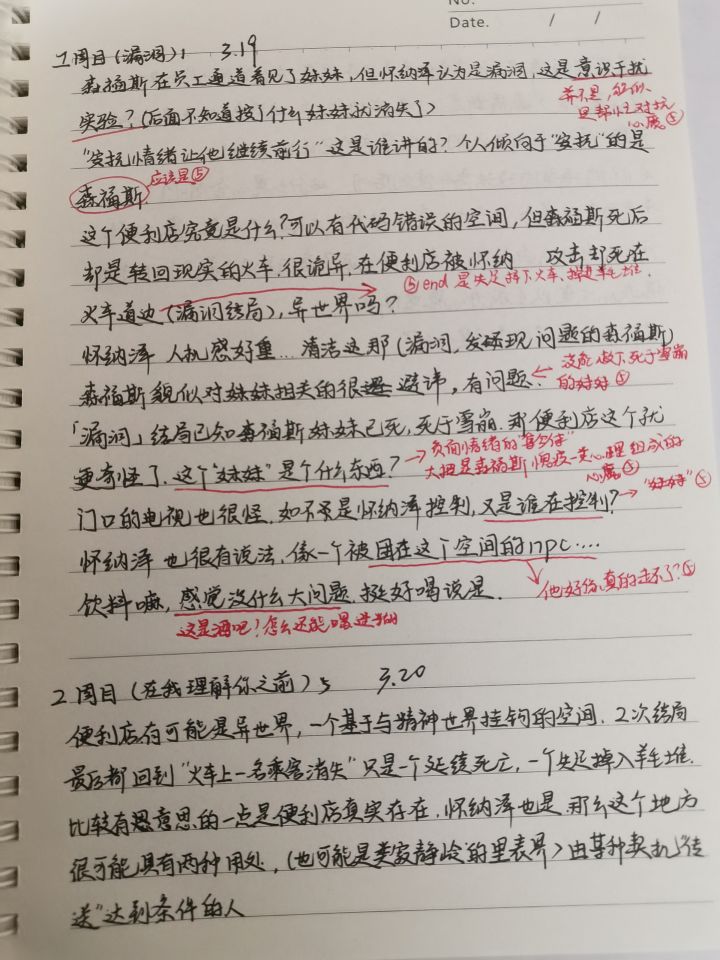 No.
Date. / /
1周目(漏洞)1 3.19
森福斯在员工通道看见了妹妹,但怀纳泽认为是漏洞,这是意识干扰
实验?(后面不知道按了什么妹妹就消失了)
并不是,
是帮忙对抗
心魔⑤
"安抚情绪让他继续前行"这是谁讲的?个人倾向于"安抚"的是
森福斯
应该是⑤
这个便利店究竟是什么?可以有代码错误的空间,但森福斯死后
却是转回现实的火车,很诡异,在便利店被怀纳 攻击却死在
⑤end 是失足掉下火车、掉进羊毛堆.
火车道边(漏洞结局),异世界吗?
怀纳泽 人机感好重…清洁这那(漏洞,发现问题的森福斯)
森福斯貌似对妹妹相关的很避讳,有问题.
没能救下死于雪崩
的妹妹⑤
「漏洞」结局已知森福斯妹妹已死,死于雪崩.那便利店这个就
更奇怪了,这个"妹妹"是个什么东西?
负面情绪的集合体
大概是森福斯愧疚心理组成的
心魔⑤
门口的电视也很怪.如不是怀纳泽控制,又是谁在控制?
"妹妹"⑤
怀纳泽 也很有说法,像一个被困在这个空间的npc….
他好像真的走不了?⑤
饮料嘛,感觉没什么大问题.挺好喝说是.
这是酒吧!怎么还能喝进去的
2周目(在我理解你之前)5 3.20
便利店有可能是异世界,一个基于与精神世界挂钩的空间.2次结局
最后都回到"火车上一名乘客消失"只是一个延续死亡,一个失足掉入羊毛堆.
比较有意思的一点是便利店真实存在.怀纳泽也是.那么这个地方
很可能具有两种用处,(也可能是类寂静岭的里表界)由某种契机"传
送"达到条件的人